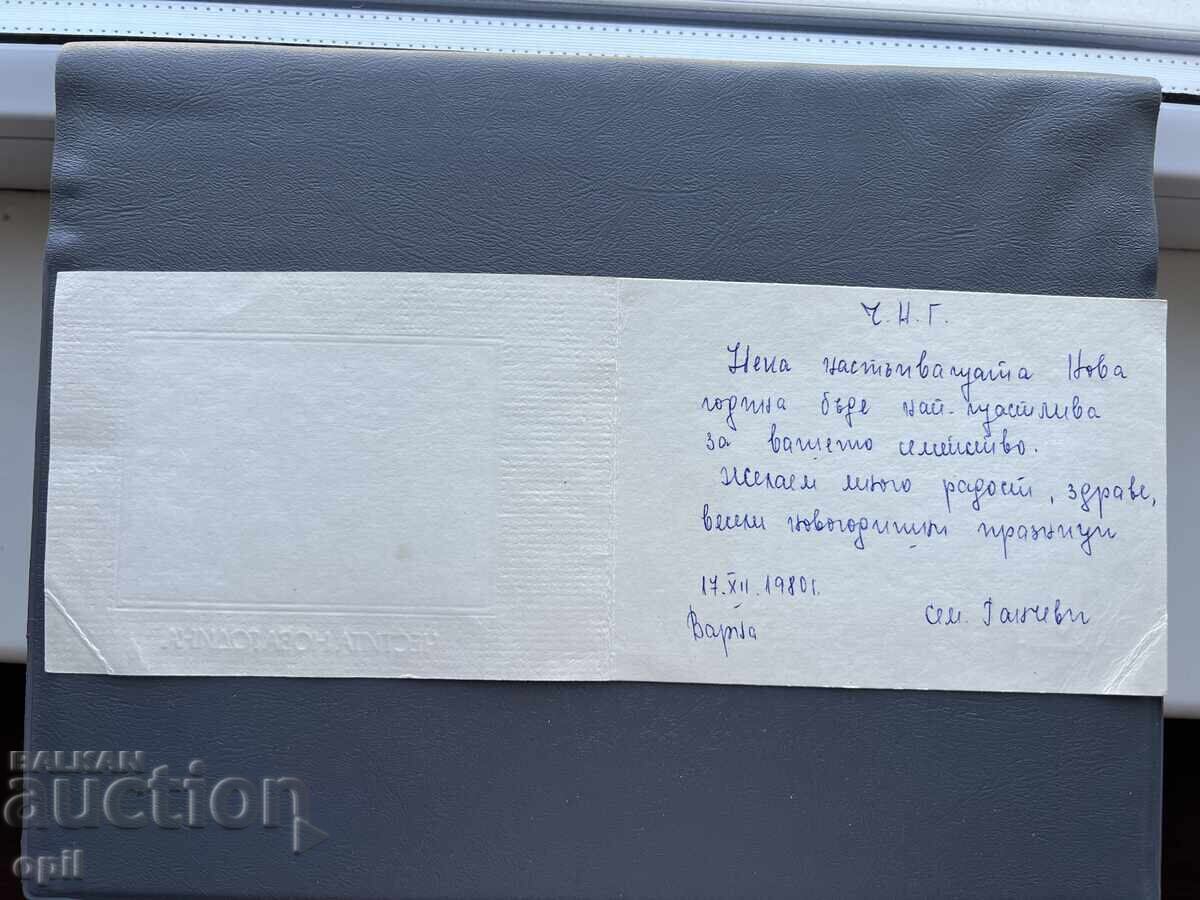 Ч. Н. Г.
Нека настъпващата Нова
година бъде най-щастлива
за вашето семейство.
Желаем много радост, здраве,
весели новогодишни празници
17.XII.1980г.
Варна
Сем. Ганчеви
ЧЕСТИТА НОВА ГОДИНА
BALKAN
auction
opil